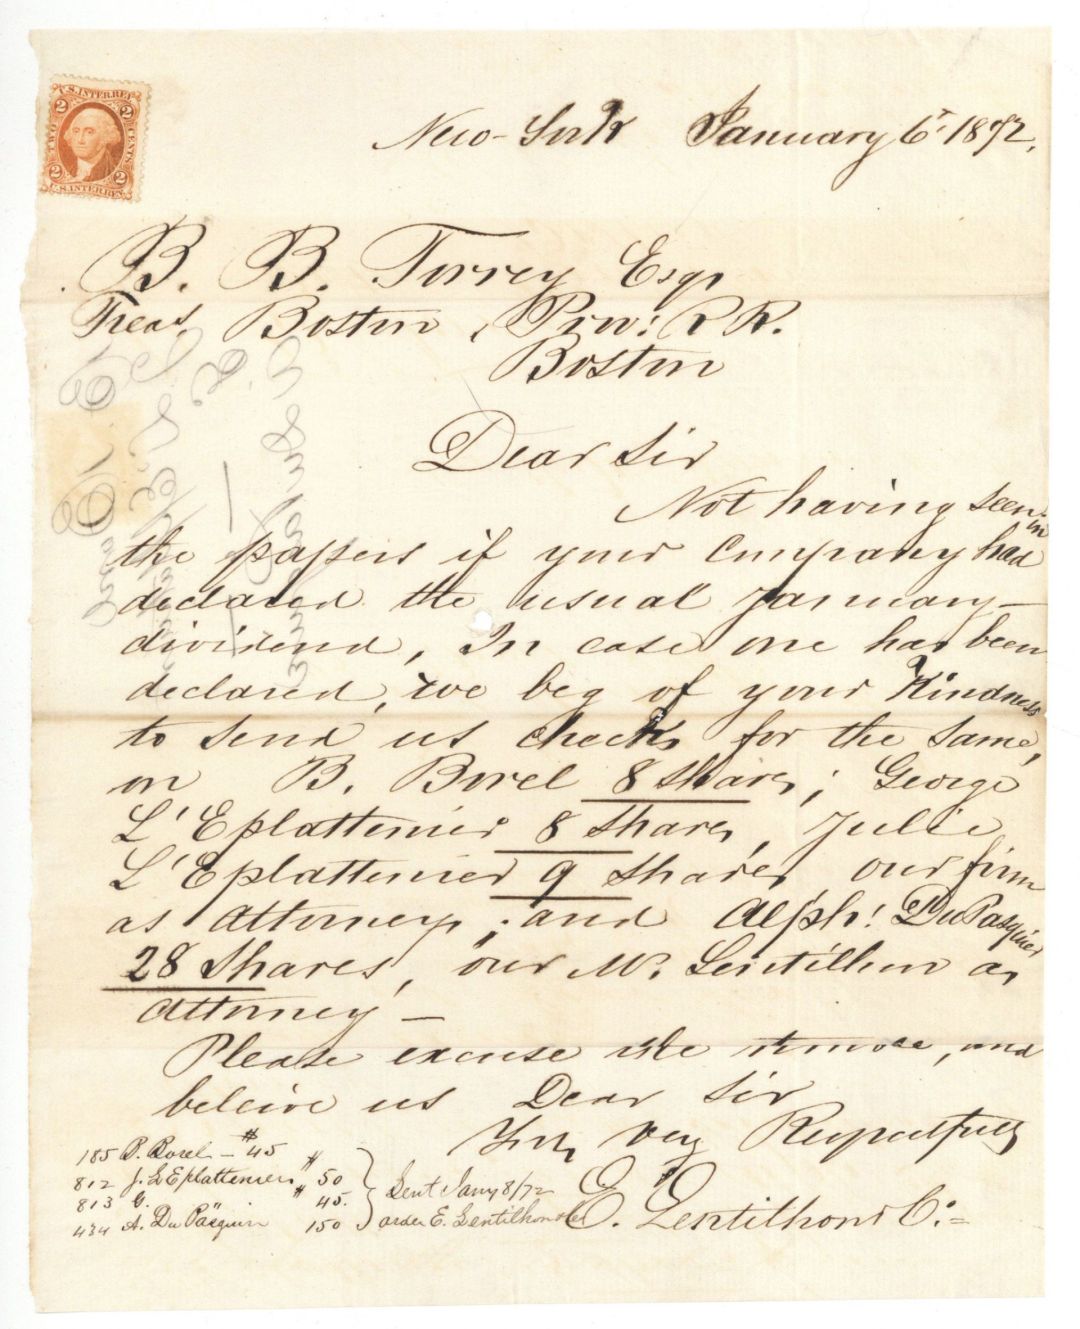 U.S. INTER. REV.
2 2
TWO CENTS
2 2
U.S. INTER. REV.
New-York January 6t 1872,
B. B. Torrey Esqr
Treas. Boston & Prov: R R.
Boston
Dear Sir
Not having seen in
the papers if your Company had
declared the usual January
dividend, In case one has been
declared, we beg of your Kindness
to send us checks for the same,
on B. Borel 8 shares; George
L'Eplattenier 8 shares, Julie
L'Eplattenier 9 shares, our firm
as attorney; and Alph: DuPasquier
28 shares, our Mr. Gentilhon as
attorney —
Please excuse the
, and
beleive us Dear Sir
Yrs very Respectfully
E. Gentilhon & C:
185 B. Borel - $45
812 J. L'Eplattenier $50
813 G. " $45.
434 A. DuPasquier 150
Sent Jany 8/72
order E. Gentilhon & Co